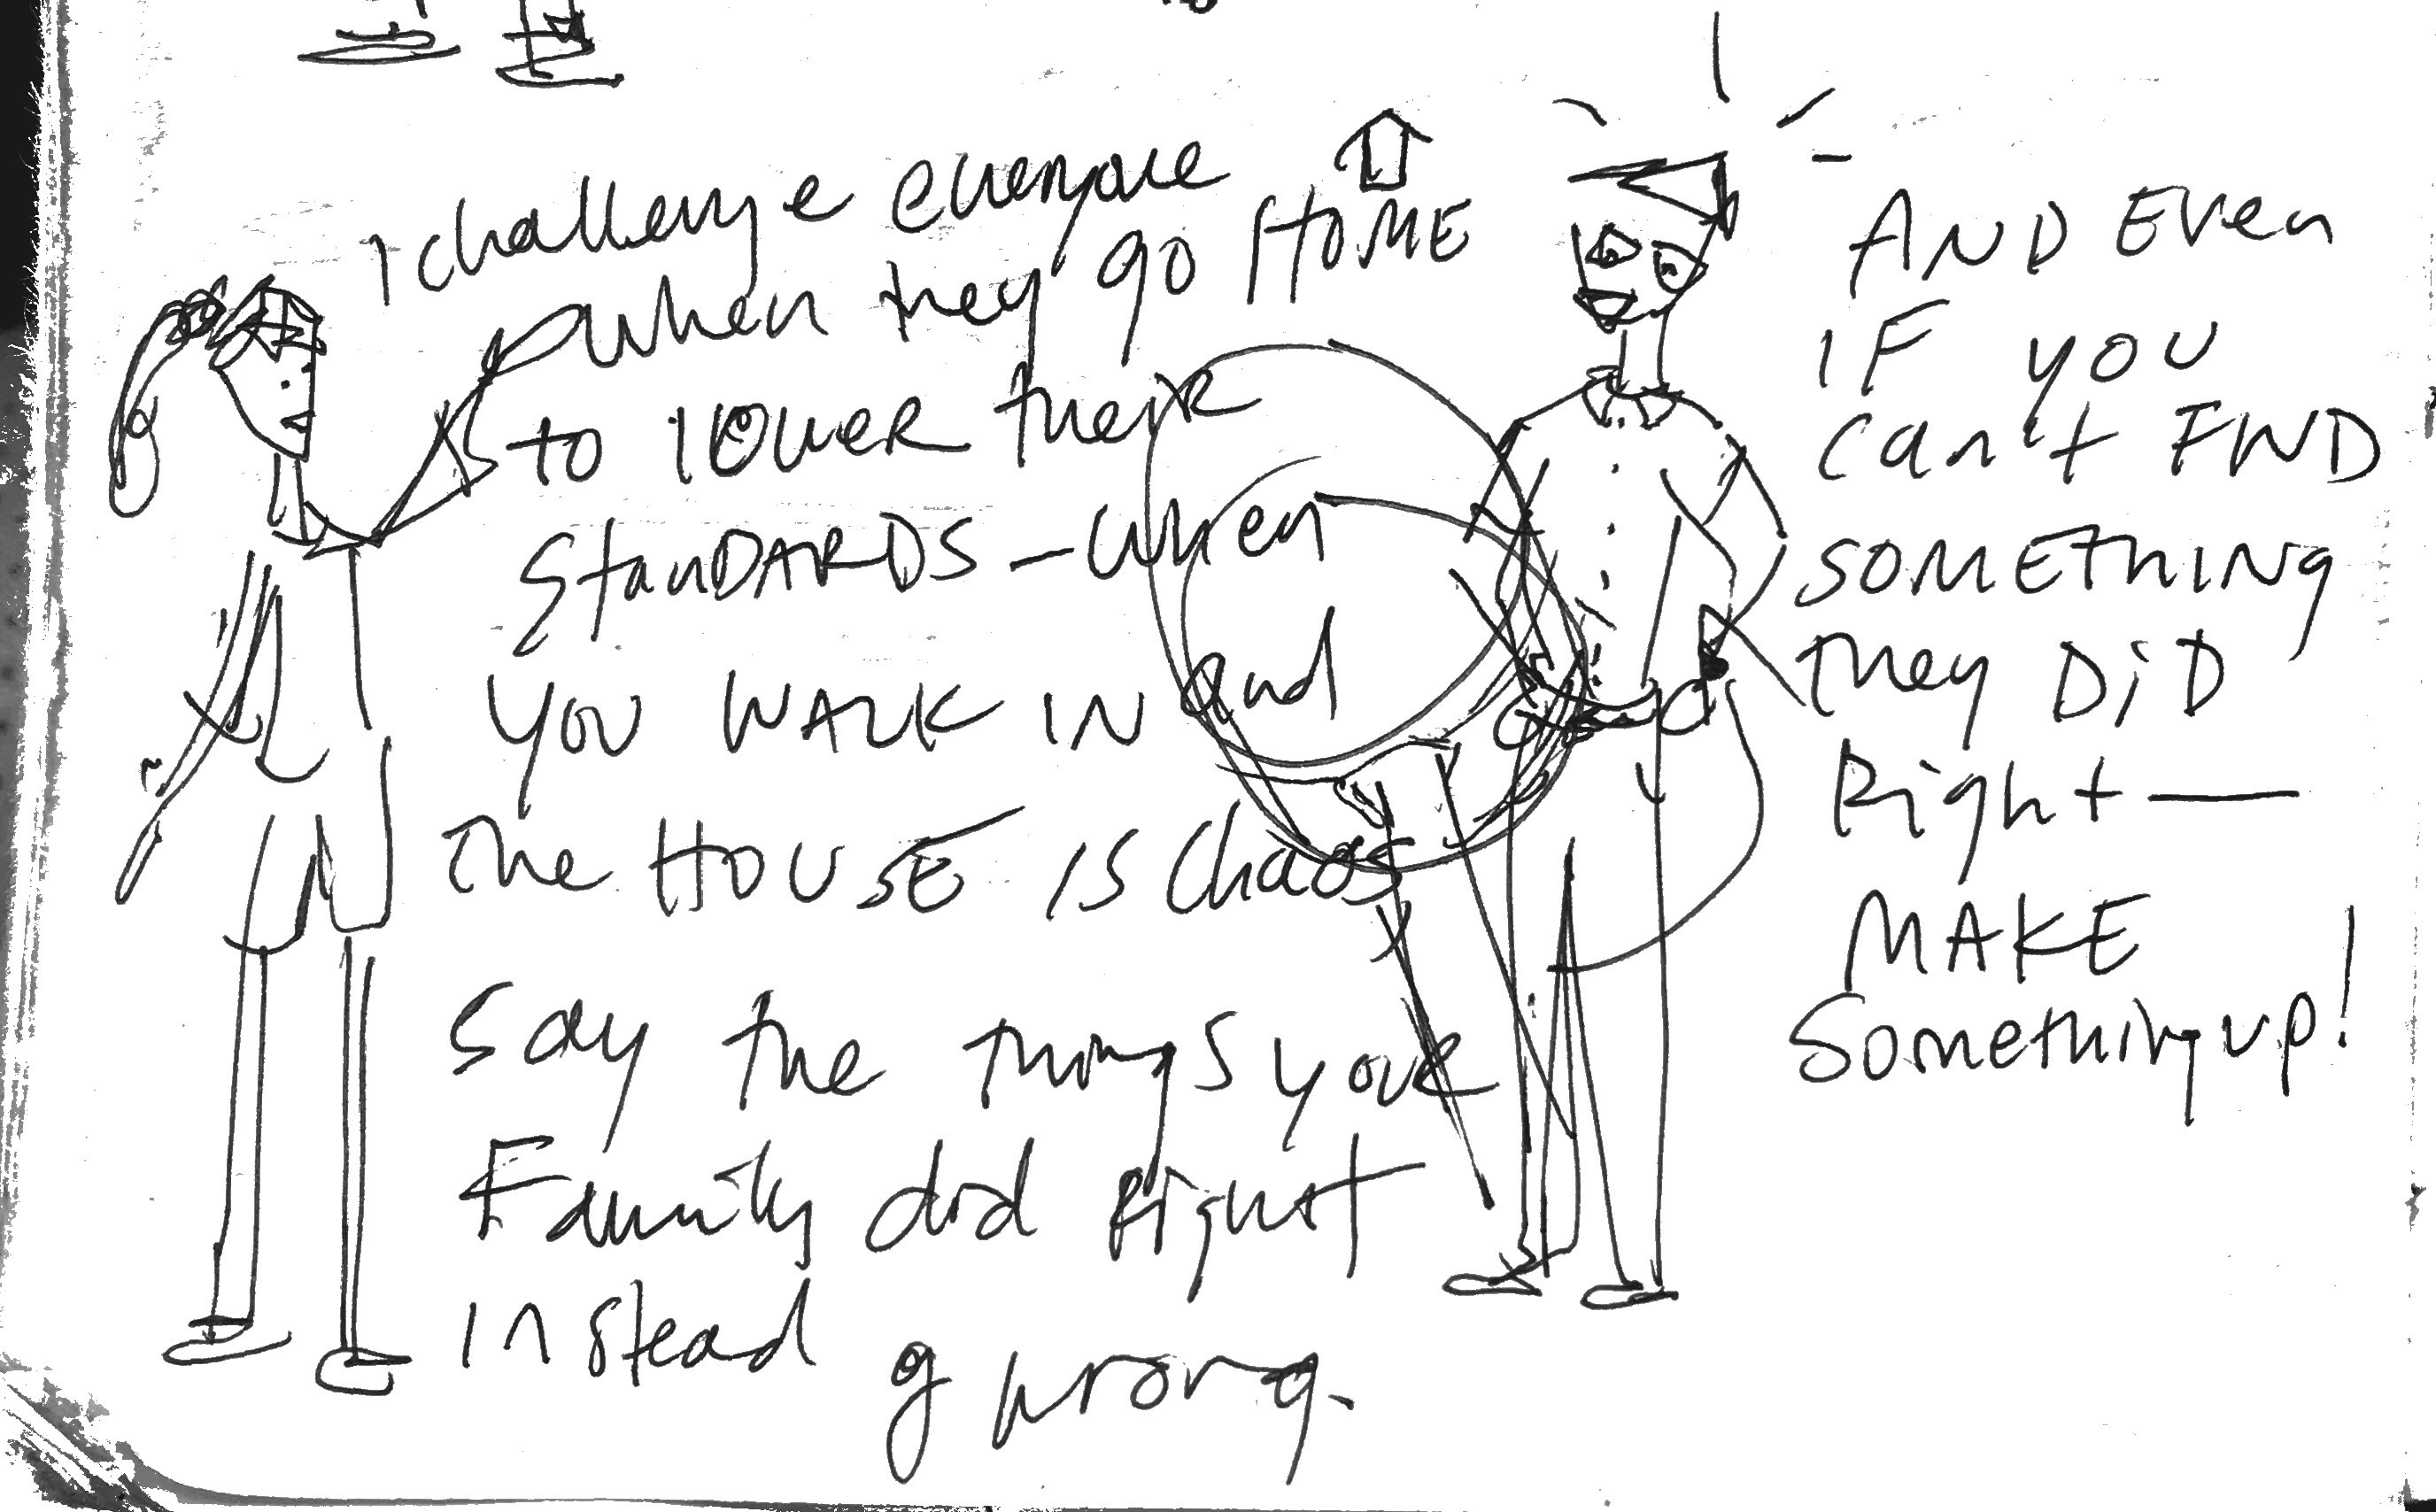 I challenge everyone
when they go HOME
to lower their
StanDARDS - when
you WALK IN and
the HOUSE is chaos
say the things your
Family did Right
instead of wrong.
AND Even
IF you
can't FIND
SOMETHING
they DiD
Right —
MAKE
Something up!